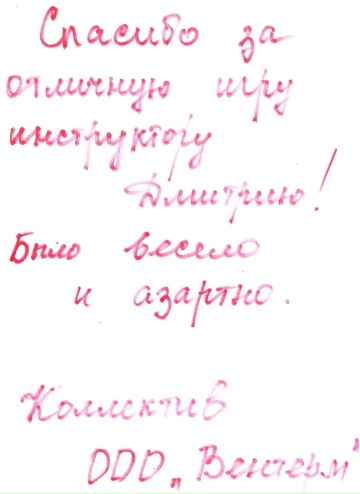 Спасибо за
отличную игру
инструктору
Дмитрию!
Было весело
и азартно.
Коллектив
ООО „Вентерм"